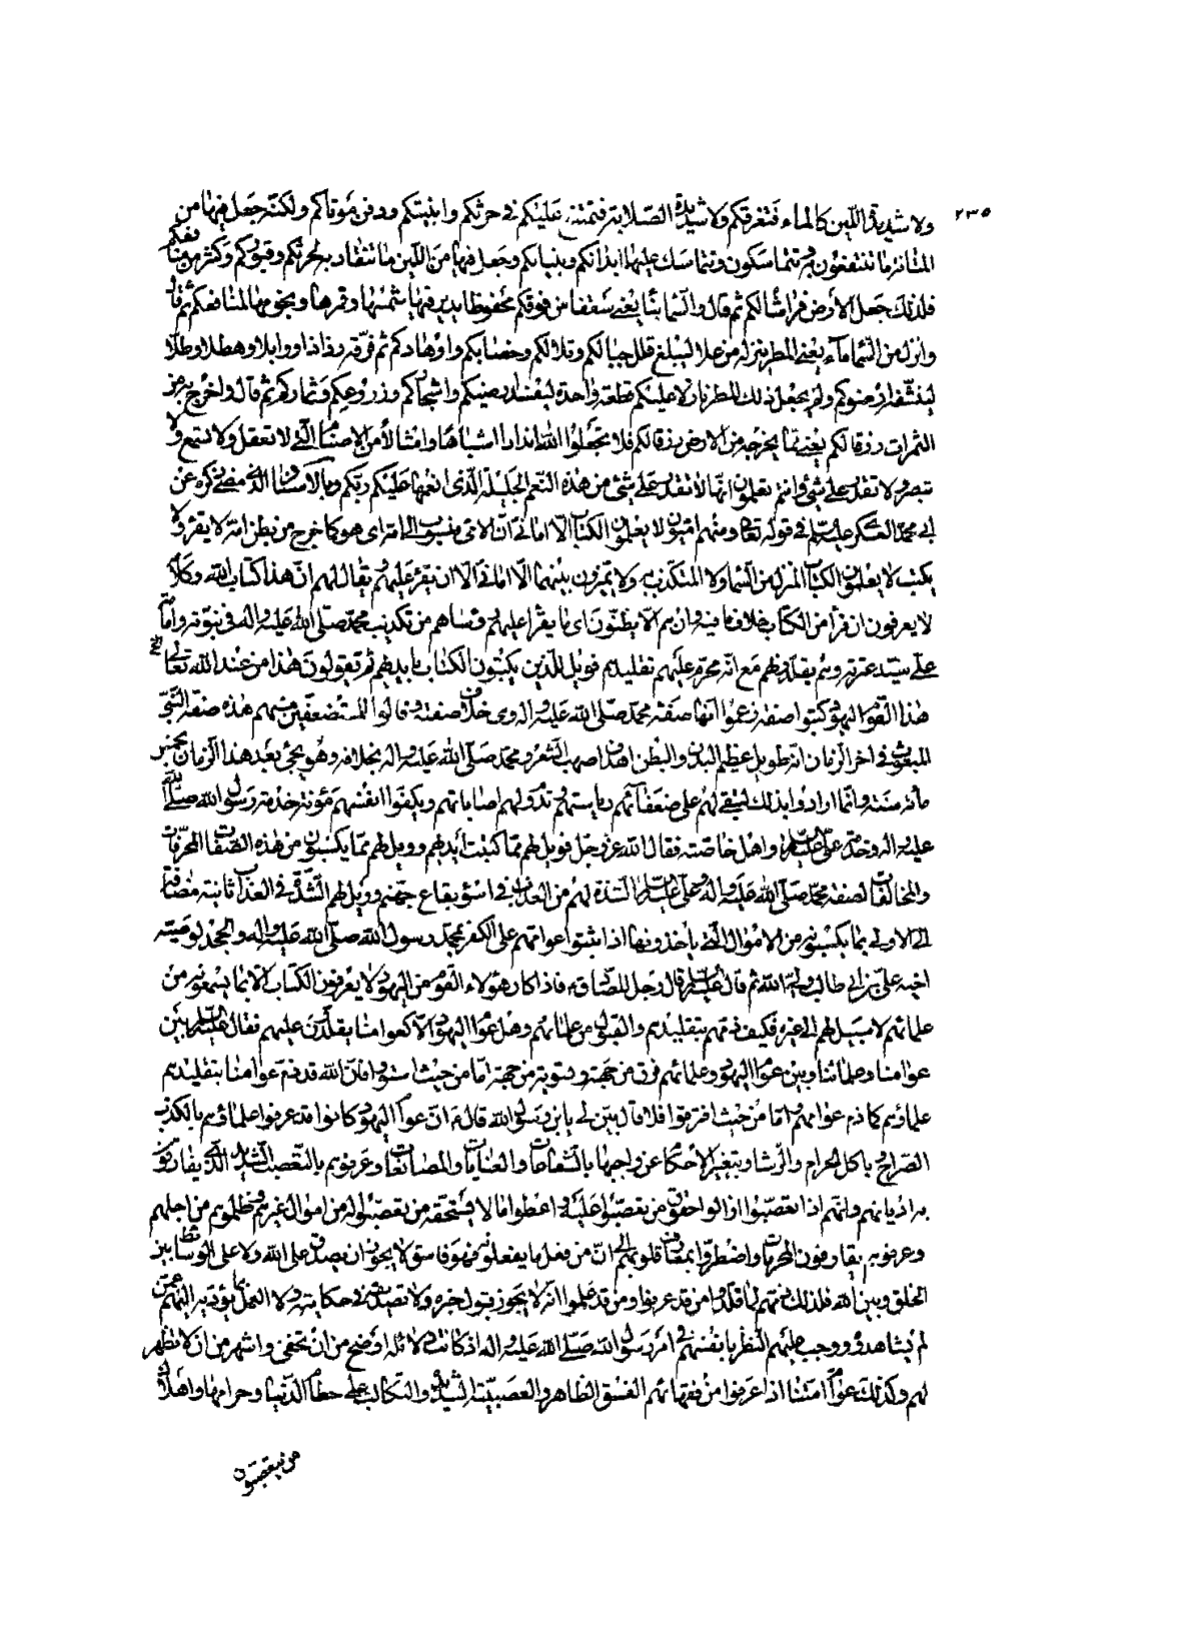 ٢٣٥
ولا شديدة اللين كالماء فتغرقكم ولا شديدة الصلابة فتمتنع عليكم في حرثكم وابنيتكم ودفن موتاكم ولكنه جعل فيها من
المتانة ما تنتفعون به وتتماسكون وتتماسك عليها ابدانكم وبنيانكم وجعل فيها من اللين ما تنقاد به لحرثكم وقبوركم وكثير من منافعكم
فلذلك جعل الارض فراشا لكم ثم قال والسماء بناء يعني سقفا من فوقكم محفوظا يدير فيها شمسها وقمرها ونجومها لمنافعكم ثم قال
وانزل من السماء ماء يعني المطر ينزله من علا ليبلغ قلل جبالكم وتلالكم وهضابكم واوهادكم ثم فرقه رذاذا ووابلا وهطلا وطلا
لينشفه ارضوكم ولم يجعل ذلك المطر نازلا عليكم قطعة واحدة ليفسد ارضيكم واشجاركم وزروعكم وثماركم ثم قال واخرج به من
الثمرات رزقا لكم يعني مما يخرجه من الارض رزقا لكم فلا تجعلوا لله اندادا اشباها وامثالا من الاصنام التي لا تعقل ولا تسمع ولا
تبصر ولا تقدر على شيء وانتم تعلمون انها لا تقدر على شيء من هذه النعم الجليلة الذي انعمها عليكم ربكم وبالاسناد الذي مضى ذكره عن
ابي محمد العسكري عليه السلم في قوله تعالى ومنهم اميون لا يعلمون الكتاب الا اماني ان الامي منسوب الى امه اي هو كما خرج من بطن امه لا يقرء ولا
يكتب لا يعلمون الكتاب المنزل من السماء ولا المتكذب به ولا يميزون بينهما الا اماني الا ان يقرء عليهم ويقال لهم ان هذا كتاب الله وكلامه
لا يعرفون ان قرأ من الكتاب خلاف ما فيه وان هم الا يظنون اي ما يقرأ عليهم رؤساهم من تكذيب محمد صلى الله عليه واله في نبوته وامامة
علي سيد عترته وهم يقلدونهم مع انه محرم عليهم تقليدهم فويل للذين يكتبون الكتاب بايديهم ثم يقولون هذا من عند الله تعالى الخ
هذا القوم اليهود كتبوا صفة زعموا انها صفة محمد صلى الله عليه واله وهي خلاف صفته وقالوا للمستضعفين منهم هذه صفة النبي
المبعوث في اخر الزمان انه طويل عظيم البدن والبطن اهدف اصهب الشعر ومحمد صلى الله عليه واله بخلافه وهو يجيء بعد هذا الزمان بخمس
مأته سنة وانما ارادوا بذلك لتبقى لهم على ضعفائهم رياستهم وتدوم لهم اصاباتهم ويكفوا انفسهم مؤنة خدمة رسول الله صلى الله
عليه واله وخدمة علي عليه السلم واهل خاصته فقال الله عز وجل فويل لهم مما كتبت ايديهم وويل لهم مما يكسبون من هذه الصفات المحرفات
والمخالفات لصفة محمد صلى الله عليه واله وعلي عليه السلم الشدة لهم من العذاب في اسوء بقاع جهنم وويل لهم الشدة في العذاب ثانية مضافة
الى الاولى بما يكسبونه من الاموال التي يأخذونها اذا ثبتوا عوامهم على الكفر بمحمد رسول الله صلى الله عليه واله والجحد لوصيته
اخيه علي بن ابي طالب ولي الله ثم قال عليه السلم قال رجل للصادق ع فاذا كان هؤلاء القوم من اليهود لا يعرفون الكتاب الا بما يسمعونه من
علمائهم لا سبيل لهم الى غيره فكيف ذمهم بتقليدهم والقبول من علمائهم وهل عوام اليهود الا كعوامنا يقلدون علمائهم فقال عليه السلم بين
عوامنا وعلمائنا وبين عوام اليهود وعلمائهم فرق من جهة وتسوية من جهة اما من حيث استووا فان الله قد ذم عوامنا بتقليدهم
علماءهم كما ذم عوامهم واما من حيث افترقوا فلا قال بين لي يا ابن رسول الله قال ع ان عوام اليهود كانوا قد عرفوا علماءهم بالكذب
الصراح وباكل الحرام والرشاء وبتغيير الاحكام عن واجبها بالشفاعات والعنايات والمصانعات وعرفوهم بالتعصب الشديد الذي يفارقون
به اديانهم وانهم اذا تعصبوا ازالوا حقوق من تعصبوا عليه واعطوا ما لا يستحقه من تعصبوا له من اموال غيرهم وظلموهم من اجلهم
وعرفوهم يقارفون المحرمات واضطروا بمعارف قلوبهم الى ان من فعل ما يفعلونه فهو فاسق لا يجوز ان يصدق على الله ولا على الوسائط بين
الخلق وبين الله فلذلك ذمهم لما قلدوا من قد عرفوا ومن قد علموا انه لا يجوز قبول خبره ولا تصديقه في حكايته ولا العمل بما يؤديه اليهم عمن
لم يشاهدوه ووجب عليهم النظر بانفسهم في امر رسول الله صلى الله عليه واله اذ كانت دلائله اوضح من ان تخفى واشهر من ان لا تظهر
لهم وكذلك عوام امتنا اذا عرفوا من فقهائهم الفسق الظاهر والعصبية الشديدة والتكالب على حطام الدنيا وحرامها واهلاك
من يتعصبون